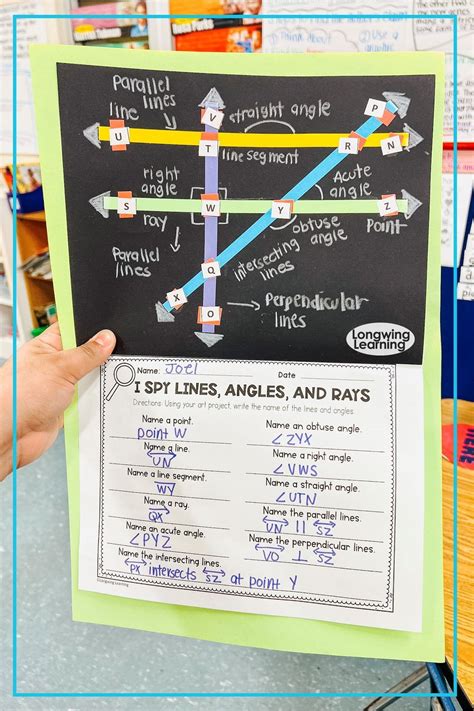 Parallel
lines
line
straight angle
P
V
U
T
line segment
R
N
right
angle
Acute
angle
S
W
Y
Z
ray
obtuse
angle
Point
Parallel
lines
intersecting
lines
Q
X
O
Perpendicular
lines
Longwing
Learning
Name: Joel Date
I SPY LINES, ANGLES, AND RAYS
Directions: Using your art project, write the name of the lines and angles.
Name a point.
point W
Name a line.
UN
Name a line segment.
WY
Name a ray.
QX
Name an acute angle.
∠PYZ
Name an obtuse angle.
∠ZYX
Name a right angle.
∠VWS
Name a straight angle.
∠UTN
Name the parallel lines.
UN || SZ
Name the perpendicular lines.
VO ⊥ SZ
Name the intersecting lines.
PX intersects SZ at point Y